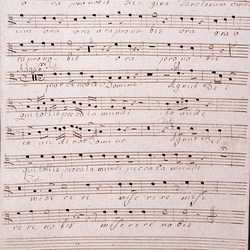 o ra pro nobis Re gina Sanctorum om
ora ora pro no bis ora ora o
ra pro no bis ora pro no bis
par ce no bis Domine Agnus De i
qui tollis pecca ta mundi
ex au di nos Domine Agnus De i
qui tollis pecca ta mundi pecca ta mundi
mise re re mise re re
re re no bis mise re re no bis